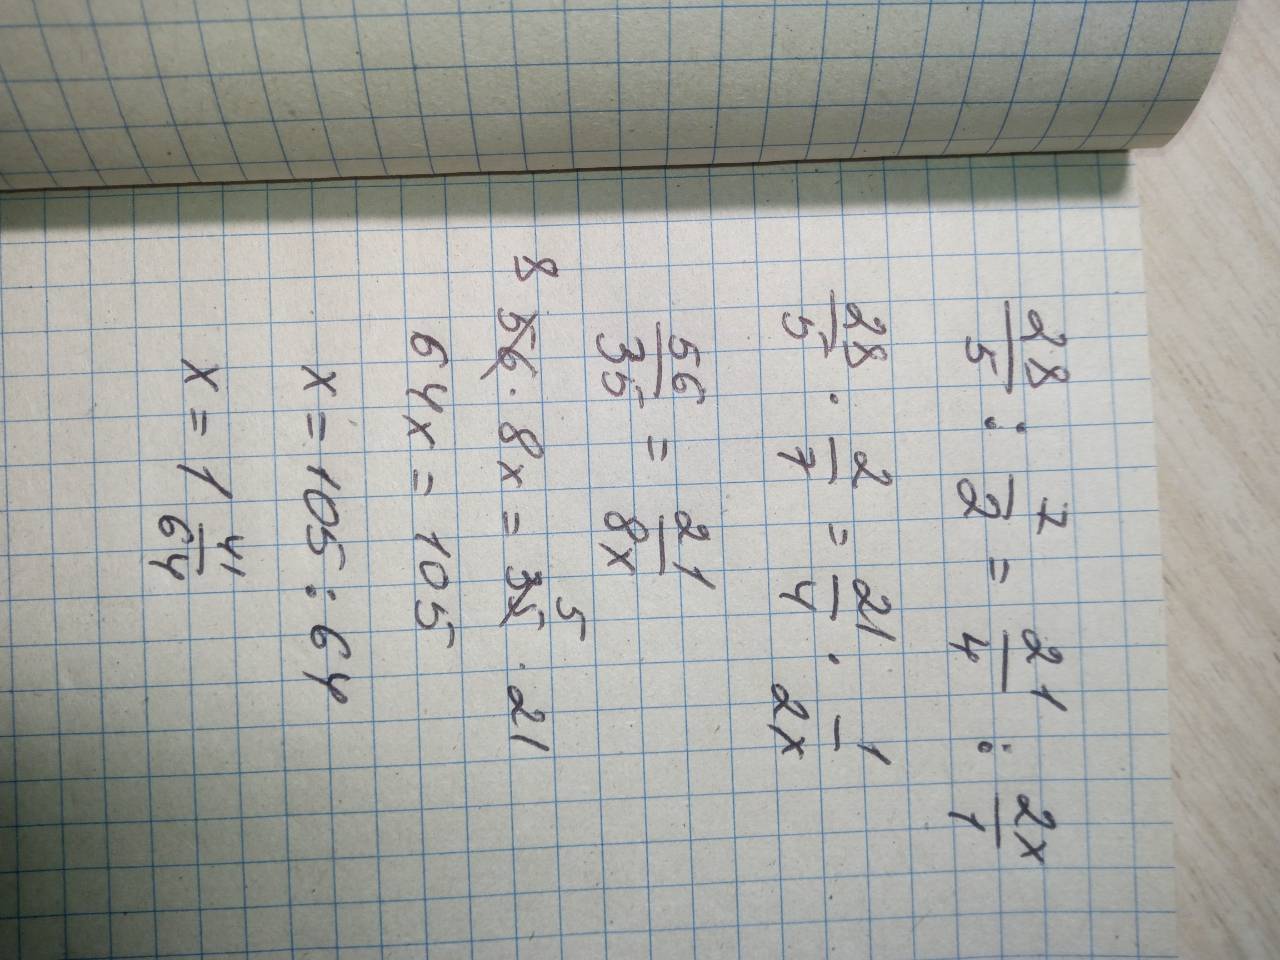 28/5 : 7/2 = 21/4 : 2x/1
28/5 · 2/7 = 21/4 · 1/2x
56/35 = 21/8x
8 56 · 8x = 35 5 · 21
64x = 105
x = 105 : 64
x = 1 41/64